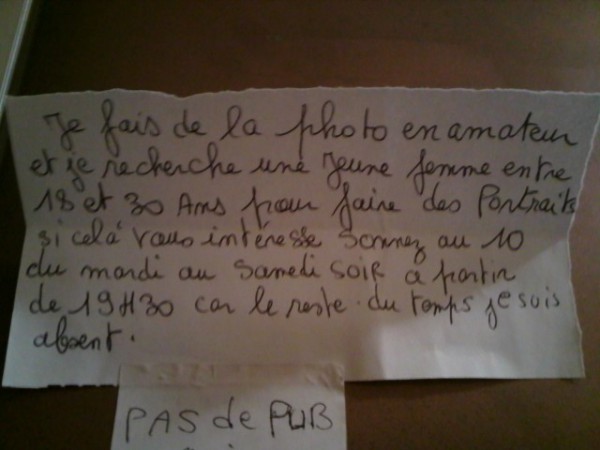 Je fais de la photo en amateur
et je recherche une Jeune femme entre
18 et 30 Ans pour faire des Portraits
si celà vous intéresse sonnez au 10
du mardi au Samedi soir a partir
de 19H30 car le reste du temps je suis
absent.
PAS de PUB